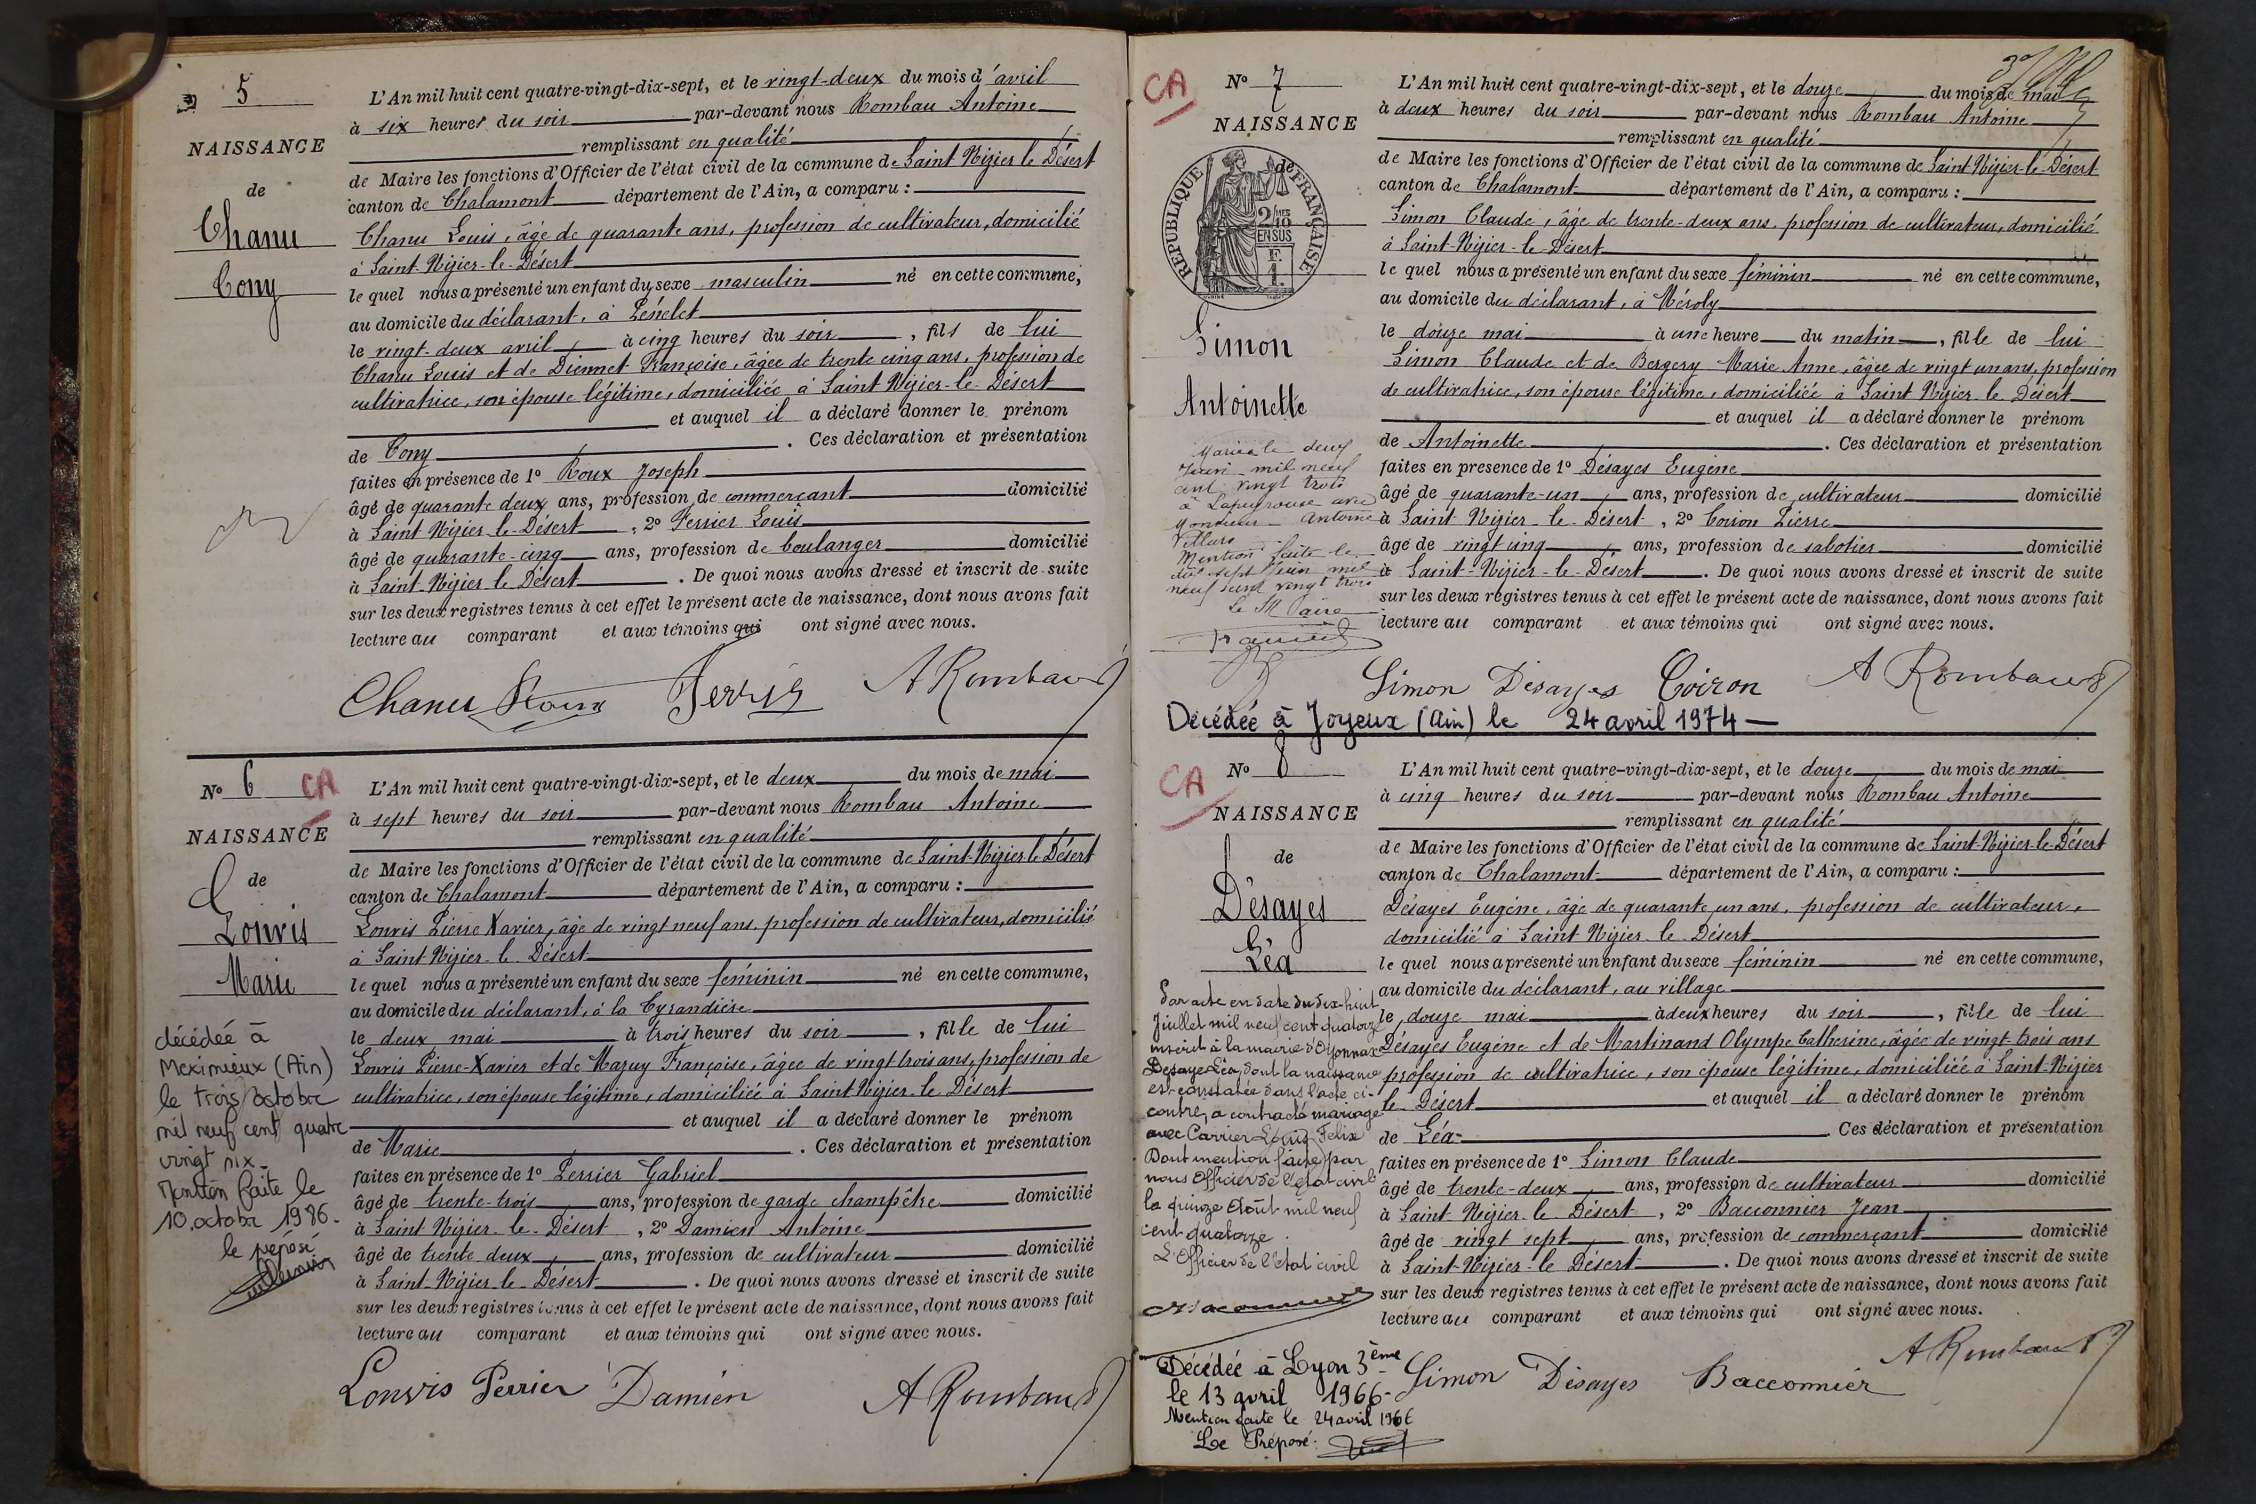 5
NAISSANCE
de
Chanu
Tony
L'An mil huit cent quatre-vingt-dix-sept, et le vingt-deux du mois d'avril
à six heures du soir par-devant nous Rombau Antoine
remplissant en qualité
de Maire les fonctions d'Officier de l'état civil de la commune de Saint Nizier le Désert
canton de Chalamont département de l'Ain, a comparu :
Chanu Louis, âgé de quarante ans, profession de cultivateur, domicilié
à Saint-Nizier-le-Désert
le quel nous a présenté un enfant du sexe masculin né en cette commune,
au domicile du déclarant, à
le vingt-deux avril à cinq heures du soir, fils de lui
Chanu Louis et de Diennet Françoise, âgée de trente cinq ans, profession de
cultivatrice, son épouse légitime, domiciliée à Saint Nizier-le-Désert
et auquel il a déclaré donner le prénom
de Tony. Ces déclaration et présentation
faites en présence de 1º Roux Joseph
âgé de quarante deux ans, profession de commerçant domicilié
à Saint Nizier-le-Désert, 2º Perrier Louis
âgé de quarante-cinq ans, profession de boulanger domicilié
à Saint-Nizier-le-Désert. De quoi nous avons dressé et inscrit de suite
sur les deux registres tenus à cet effet le présent acte de naissance, dont nous avons fait
lecture au comparant et aux témoins qui ont signé avec nous.
Chanu Roux Perrier A Rombau
Nº 6 CA
NAISSANCE
de
Louvis
Marie
L'An mil huit cent quatre-vingt-dix-sept, et le deux du mois de mai
à sept heures du soir par-devant nous Rombau Antoine
remplissant en qualité
de Maire les fonctions d'Officier de l'état civil de la commune de Saint-Nizier le Désert
canton de Chalamont département de l'Ain, a comparu :
Louvis Pierre Xavier, âgé de vingt neuf ans, profession de cultivateur, domicilié
à Saint-Nizier-le-Désert
le quel nous a présenté un enfant du sexe féminin né en cette commune,
au domicile du déclarant, à la Tyrandière
le deux mai à trois heures du soir, fille de lui
Louvis Pierre-Xavier et de Mazuy Françoise, âgée de vingt trois ans, profession de
cultivatrice, son épouse légitime, domiciliée à Saint Nizier-le-Désert
et auquel il a déclaré donner le prénom
de Marie. Ces déclaration et présentation
faites en présence de 1º Perrier Gabriel
âgé de trente-trois ans, profession de garde champêtre domicilié
à Saint Nizier-le-Désert, 2º Damien Antoine
âgé de trente deux ans, profession de cultivateur domicilié
à Saint-Nizier-le-Désert. De quoi nous avons dressé et inscrit de suite
sur les deux registres tenus à cet effet le présent acte de naissance, dont nous avons fait
lecture au comparant et aux témoins qui ont signé avec nous.
décédée à
Meximieux (Ain)
le trois octobre
mil neuf cent quatre
vingt six.
Mention faite le
10 octobre 1986.
le préposé
Louvis Perrier Damien A Rombau
CA
Nº 7
NAISSANCE
de
REPUBLIQUE FRANÇAISE
2/10 EN SUS
F. 1.
Simon
Antoinette
L'An mil huit cent quatre-vingt-dix-sept, et le douze du mois de mai
à deux heures du soir par-devant nous Rombau Antoine
remplissant en qualité
de Maire les fonctions d'Officier de l'état civil de la commune de Saint-Nizier-le-Désert
canton de Chalamont département de l'Ain, a comparu :
Simon Claude, âgé de trente-deux ans, profession de cultivateur, domicilié
à Saint-Nizier-le-Désert
le quel nous a présenté un enfant du sexe féminin né en cette commune,
au domicile du déclarant, à Méroly
le douze mai à une heure du matin, fille de lui
Simon Claude et de Bergery Marie Anne, âgée de vingt un ans, profession
de cultivatrice, son épouse légitime, domiciliée à Saint Nizier-le-Désert
et auquel il a déclaré donner le prénom
de Antoinette. Ces déclaration et présentation
faites en presence de 1º Désayes Eugène
âgé de quarante-un ans, profession de cultivateur domicilié
à Saint Nizier-le-Désert, 2º Coiron Pierre
âgé de vingt cinq ans, profession de sabotier domicilié
à Saint-Nizier-le-Désert. De quoi nous avons dressé et inscrit de suite
sur les deux registres tenus à cet effet le présent acte de naissance, dont nous avons fait
lecture au comparant et aux témoins qui ont signé avec nous.
Mariée le deux
mil neuf
cent vingt trois
à Lapeyrouse avec
Monsieur Antoine
Villars
Mention faite le
dix-sept juin mil
neuf cent vingt trois
Le Maire
Simon Désayes Coiron A Rombau
Décédée à Joyeux (Ain) le 24 avril 1974
CA
Nº 8
NAISSANCE
de
Désayes
Léa
L'An mil huit cent quatre-vingt-dix-sept, et le douze du mois de mai
à cinq heures du soir par-devant nous Rombau Antoine
remplissant en qualité
de Maire les fonctions d'Officier de l'état civil de la commune de Saint-Nizier-le-Désert
canton de Chalamont département de l'Ain, a comparu :
Désayes Eugène, âgé de quarante un ans, profession de cultivateur,
domicilié à Saint Nizier-le-Désert
le quel nous a présenté un enfant du sexe féminin né en cette commune,
au domicile du déclarant, au village
le douze mai à deux heures du soir, fille de lui
Désayes Eugène et de Martinand Olympe Catherine, âgée de vingt-trois ans
profession de cultivatrice, son épouse légitime, domiciliée à Saint-Nizier
le Désert et auquel il a déclaré donner le prénom
de Léa. Ces déclaration et présentation
faites en présence de 1º Simon Claude
âgé de trente-deux ans, profession de cultivateur domicilié
à Saint-Nizier-le-Désert, 2º Bacconnier Jean
âgé de vingt sept ans, profession de commerçant domicilié
à Saint-Nizier-le-Désert. De quoi nous avons dressé et inscrit de suite
sur les deux registres tenus à cet effet le présent acte de naissance, dont nous avons fait
lecture au comparant et aux témoins qui ont signé avec nous.
Par acte en date du dix-huit
Juillet mil neuf cent quatorze
inscrit à la mairie d'Oyonnax
Desayes Léa, dont la naissance
est constatée dans l'acte ci-
contre, a contracté mariage
avec Carrier Louis Felix
Dont mention faite par
nous Officier de l'état civil
le quinze Août mil neuf
cent quatorze.
L'Officier de l'état civil
Décédée à Lyon 3ème
le 13 avril 1966-
Mention faite le 24 avril 1966
Le Préposé:
Simon Désayes Bacconnier A Rombau